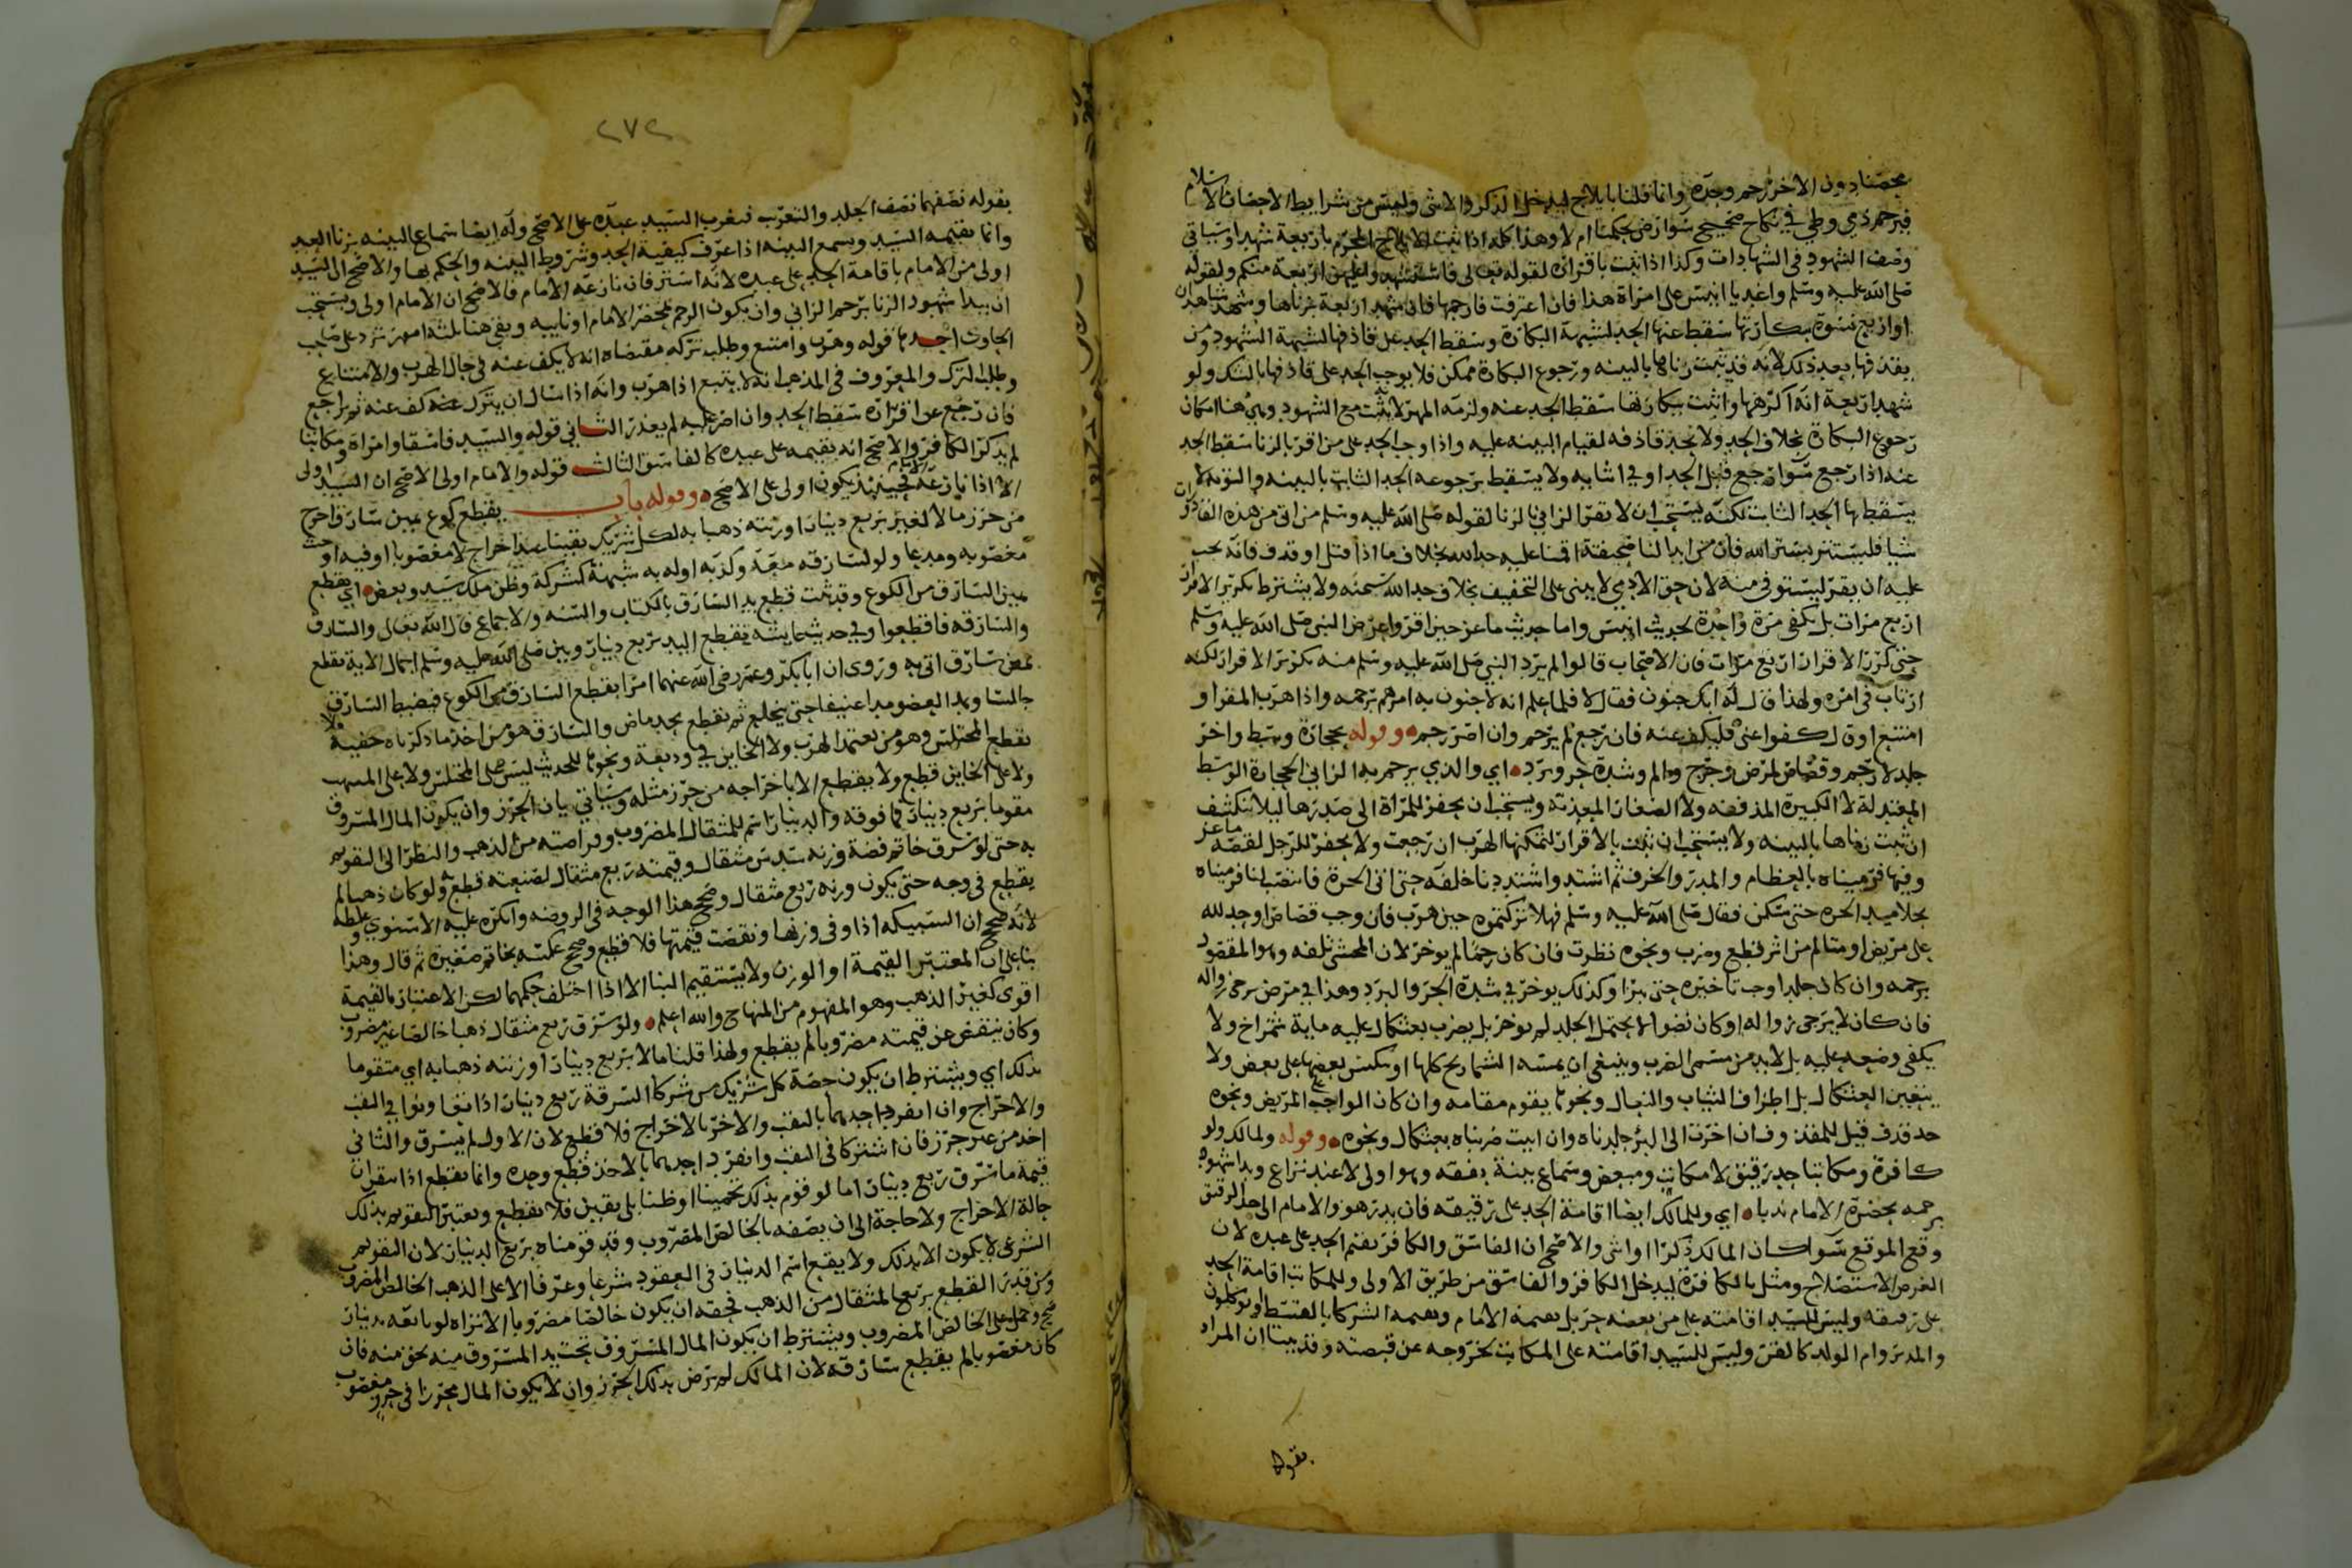 محصنا دون الاخر رجم وحده وانما قلنا بايلاج ليدخل الذكر والانثى وليس من شرايط الاحصان الاسلام
فيرجم ذمي وطي في نكاح صحيح سوا رض بحكمنا ام لا وهذا كله اذا ثبت الايلاج المحرم باربعة شهدا وسياتي
وصف الشهود في الشهادات وكذا اذا ثبت باقراره لقوله تعالى فاستشهدوا عليهن اربعة منكم ولقوله
صلى الله عليه وسلم واغد يا انيس على امراة هذا فان اعترفت فارجمها فان شهد اربعة بزناها وشهد شاهدان
او اربع نسوة ببكارتها سقط عنها الحد لشبهة البكارة وسقط الحد عن قاذفها لشبهة الشهود ومن
يقذفها بعد ذلك لانه قد ثبت زناها بالبينه ورجوع البكارة ممكن فلا يوجب الحد على قاذفها بالشك ولو
شهد اربعة انه اكرهها واثبت ببكارتها سقط الحد عنه ولزمه المهر لانه ثبت مع الشهود وهي هنا امكان
رجوع البكارة بخلاف الحد ولا يحد قاذفه لقيام البينه عليه واذا وجب الحد على من اقر بالزنا سقط الحد
عنه اذا رجع سوا رجع قبل الحد او في اثنايه ولا يسقط برجوعه الحد الثابت بالبينه والتوبة لا
يسقط بها الحد الثابت لكنه يستحب ان لا يقر الزاني بالزنا لقوله صلى الله عليه وسلم من اتى من هذه القاذورات
شيا فليستتر بستر الله فان من ابدا لنا صحيفته اقمنا عليه حد الله بخلاف ما اذا قتل او قذف فانه يجب
عليه ان يقر ليستوفى منه لان حق الادمي لا يبنى على التخفيف بخلاف حد الله سبحنه ولا يشترط تكرير الاقرار
اربع مرات بل يكفي مرة واحدة لحديث انيس واما حديث ماعز حين اقر واعرض النبي صلى الله عليه وسلم
حتى كرر الاقرار اربع مرات فان الاصحاب قالوا لم يرد النبي صلى الله عليه وسلم منه تكرير الاقرار لكنه
ارتاب في امره ولهذا قال له ابك جنون فقال لا فلما علم انه لا جنون به امرهم برجمه واذا هرب المقر او
امتنع او قال كفوا عني فليكف عنه فان رجع لم يرجم وان اصر رجم وقوله بحجارة وسط واخر
جلد لا رجم وقصاص لمرض وجرح والم وشدة حر وبرد اي والذي يرجم به الزاني الحجارة الوسط
المعتدلة لا الكبيرة المذففه ولا الصغار المعذبه ويستحب ان يحفر للمراة الى صدرها ليلا تنكشف
ان ثبت زناها بالبينه ولا يستحب ان ثبت بالاقرار لتمكنها الهرب ان رجعت ولا يحفر للرجل لقصة ماعز
وفيها فرميناه بالعظام والمدر والخزف ثم اشتد واشتددنا خلفه حتى اتى الحرة فانتصب لنا فرميناه
بجلاميد الحره حتى سكن فقال صلى الله عليه وسلم فهلا تركتموه حين هرب فان وجب قصاص او حد لله
على مريض او متالم من اثر قطع وضرب ونحوه نظرت فان كان رجما لم يوخر لان المخشي تلفه وهو المقصود
برجمه وان كان جلدا وجب تاخيره حتى يبرا وكذلك يوخر في شدة الحر والبرد وهذا في مرض يرجى زواله
فان كان لا يرجى زواله او كان نضوا لا يحتمل الجلد لم يوخر بل يضرب بعثكال عليه ماية شمراخ ولا
يكفي وضعه عليه بل لابد من مسمى الضرب وينبغي ان يمسه الشماريخ كلها او ينكبس بعضها على بعض ولا
يتعين العثكال بل اطراف الثياب والنعال ونحوها يقوم مقامه وان كان الواجب على المريض ونحوه
حد قذف قيل للمقذوف ان اخرت الى البرء جلدناه وان ابيت ضربناه بعثكال ونحوه وقوله ولمالك ولو
كافرة ومكاتبا حد رقيق لا مكاتب ومبعض وسماع بينة بفقه وهو اولى لا عند نزاع وبدا شهوده
برجمه بحضرة الامام ندبا اي وللمالك ايضا اقامة الحد على رقيقه فان بدر هو والامام الى حد الرقيق
وقع الموقع سوا كان المالك ذكرا او انثى والاصح ان الفاسق والكافر يقيم الحد على عبده لان
الغرض الاستصلاح ومثل بالكافرة ليدخل الكافر والفاسق من طريق الاولى وللمكاتب اقامة الحد
على رقيقه وليس للسيد اقامته على من بعضه حر بل يقيمه الامام ويقيمه الشركا بالقسط او يوكلون
والمدبر وام الولد كالقن وليس للسيد اقامته على المكاتب لخروجه عن قبضته وقد بينا ان المراد
بقوله
٢٧٢
بقوله نصفهما نصف الجلد والتغرب فيغرب السيد عبده على الاصح وله ايضا سماع البينه بزنا العبد
وانما يقيمه السيد ويسمع البينه اذا عرف كيفية الحد وشروط البينه والحكم بها والاصح ان السيد
اولى من الامام باقامة الحد على عبده لانه استر فان نازعه الامام فالاصح ان الامام اولى ويستحب
ان يبدا شهود الزنا برجم الزاني وان يكون الرجم بمحضر الامام او نايبه وبقي هنا ثلثه امور ترد على صاحب
الحاوي احدها قوله وهرب وامتنع وطلب تركه مقتضاه انه لا يكف عنه في حال الهرب والامتناع
وطلب الترك والمعروف في المذهب انه لا يتبع اذا هرب وانه اذا سال ان يترك عنه كف عنه ثم يراجع
فان رجع عن اقراره سقط الحد وان اصر عليه لم يعذر الثاني قوله والسيد فاسقا وامراة ومكاتبا
لم يذكر الكافر والاصح انه يقيمه على عبيده كالفاسق الثالث قوله والامام اولى الاصح ان السيد اولى
الا اذا نازعه الامام فحينئذ يكون اولى على الاصح وقوله باب يقطع كوع يمين سارق اخرج
من حرز مالا لغيره بربع دينار او زنته ذهبا به لكل شريك يقينا عند اخراج لا مغصوبا او فيه او حيث
مغصوبه ومدعا ولو لسارقه معه وكذبه او له به شبهة كشركة وظن ملك سيد وبعض اي يقطع
يمين السارق من الكوع وقد ثبت قطع يد السارق بالكتاب والسنه والاجماع قال الله تعالى والسارق
والسارقه فاقطعوا وفي حديث عايشه يقطع اليد بربع دينار وبين صلى الله عليه وسلم اجمال الاية بقطع
يمين سارق اتي به وروي ان ابا بكر وعمر رضي الله عنهما امرا بقطع السارق من الكوع فيضبط السارق
جالسا ويمد العضو مدا عنيفا حتى ينخلع ثم يقطع بحد ماض والسارق هو من اخذ ما ذكرناه خفية فلا
يقطع المختلس وهو من يعتمد الهرب ولا الخاين في وديعة ونحوها للحديث ليس على المختلس ولا على المنتهب
ولا على الخاين قطع ولا يقطع الا باخراجه من حرز مثله وسياتي بيان الحرز وان يكون المال المسروق
مقوما بربع دينار فما فوقه والدينار اسم للمثقال المضروب وقراضته من الذهب والنظر الى التقويم
به حتى لو سرق خاتم فضة وزنه سدس مثقال وقيمته ربع مثقال لصنعته قطع ولو كان ذهبا لم
يقطع في وجه حتى يكون وزنه ربع مثقال وصحح هذا الوجه في الروضه وانكره عليه الاسنوي وغلطه
لانه صحح ان السبيكه اذا وفى وزنها ونقصت قيمتها فلا قطع وصحح عكسه بخاتم صغيره ثم قال وهذا
بنا على ان المعتبر القيمة او الوزن ولا يستقيم البنا الا اذا اختلف حكمهما لكن الاعتبار بالقيمة
اقوى كغير الذهب وهو المفهوم من المنهاج والله اعلم ولو سرق ربع مثقال ذهبا خالصا غير مضروب
وكان ينقص عن قيمته مضروبا لم يقطع ولهذا قلنا مالا بربع دينار او زنته ذهبا به اي متقوما
بذلك اي ويشترط ان يكون حصة كل شريك من شركا السرقة ربع دينار اذا تعاونوا في النقب
والاخراج وان انفرد احدهما بالنقب والاخر بالاخراج فلا قطع لان الاول لم يسرق والثاني
اخذ من غير حرز فان اشتركا في النقب وانفرد احدهما بالاخذ قطع وحده وانما يقطع اذا تيقن ان
قيمة ما سرق ربع دينار اما لو قوم بذلك تخمينا او ظنا بلى يقين فلا يقطع ويعتبر التقويم بذلك
حالة الاخراج ولا حاجة الى ان يصفه بالخالص المضروب وقد قومناه بربع الدينار لان التقويم
الشرعي لا يكون الا بذلك ولا يقع اسم الدينار في العقود شرعا وعرفا الا على الذهب الخالص المضروب
ومن قدر القطع بربع المثقال من الذهب فحقه ان يكون خالصا مضروبا الا تراه لو باعه بدينار
صح وحمل على الخالص المضروب ويشترط ان يكون المال المسروق تحت يد المسروق منه بحق منه فان
كان مغصوبا لم يقطع سارقه لان المالك لم يرض بذلك الحرز وان لا يكون المال محرزا في حرز مغصوب